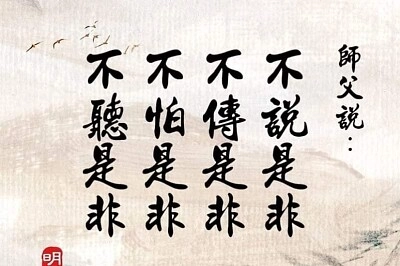 師父說：
不說是非
不傳是非
不怕是非
不聽是非
明